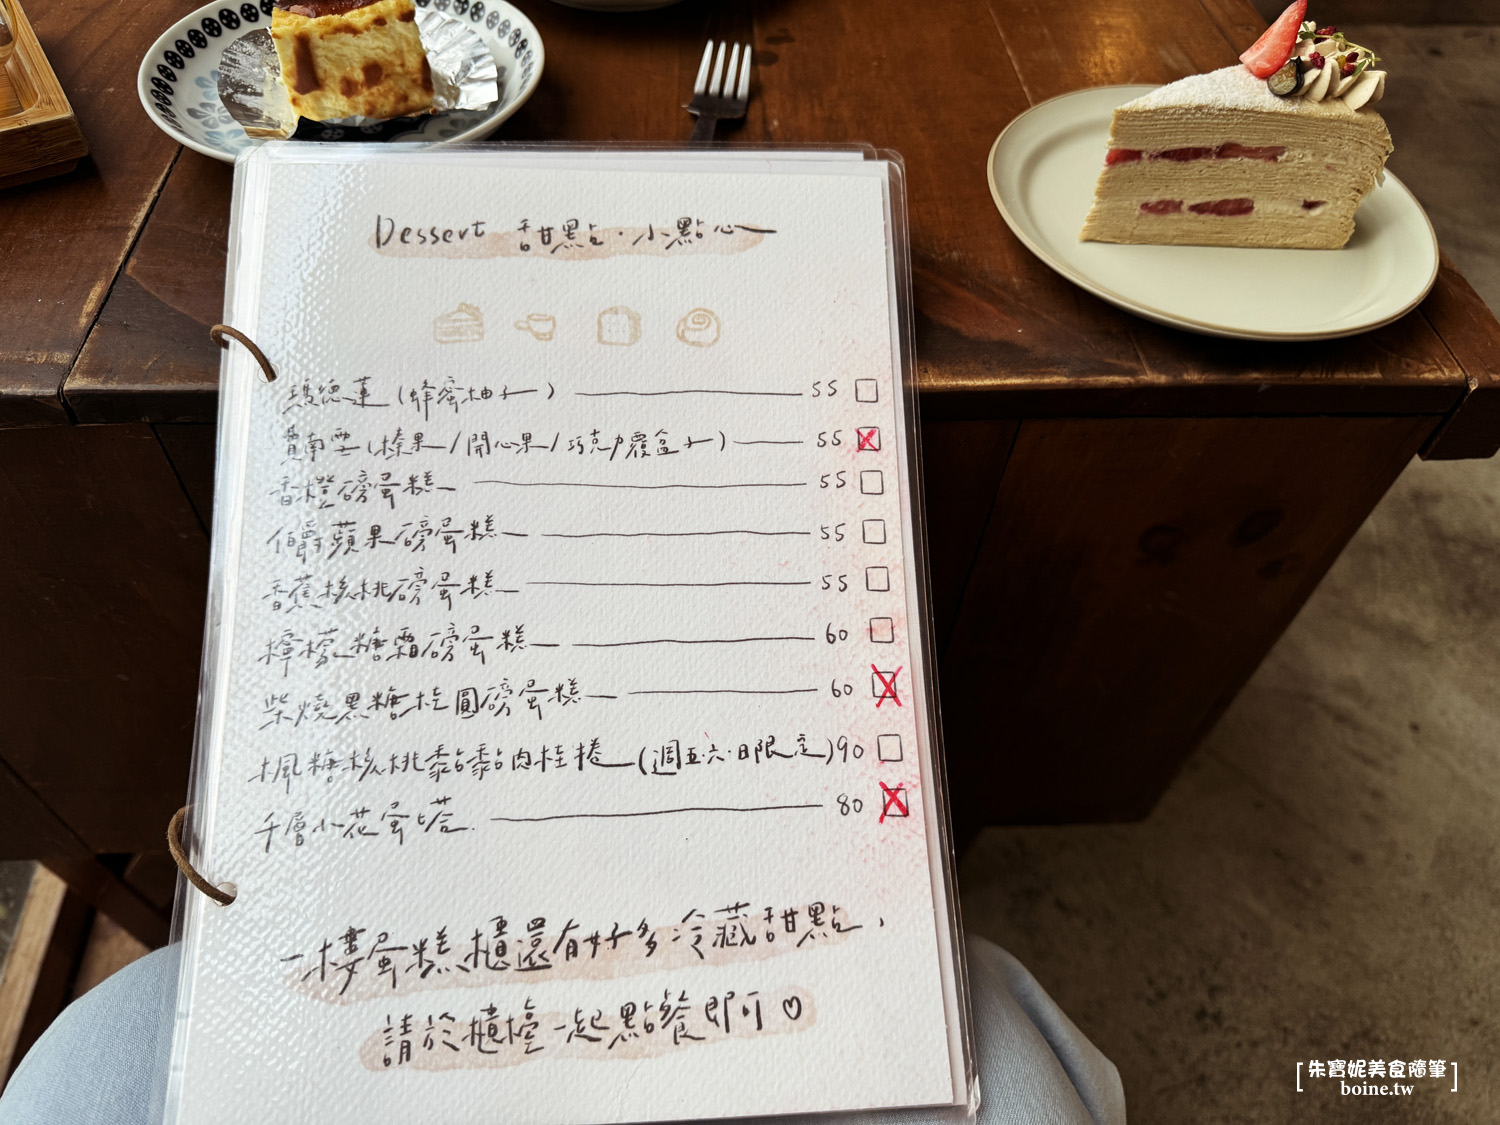 Dessert 甜點·小點心
瑪德蓮(蜂蜜柚子) 55
費南雪(榛果/開心果/巧克力覆盆子) 55
香橙磅蛋糕 55
伯爵蘋果磅蛋糕 55
香蕉核桃磅蛋糕 55
檸檬糖霜磅蛋糕 60
柴燒黑糖桂圓磅蛋糕 60
楓糖核桃黏黏肉桂捲(週五·六·日限定) 90
千層小花蛋塔 80
一樓蛋糕櫃還有好多冷藏甜點,
請於櫃檯一起點餐即可♡
朱寶妮美食隨筆
boine.tw